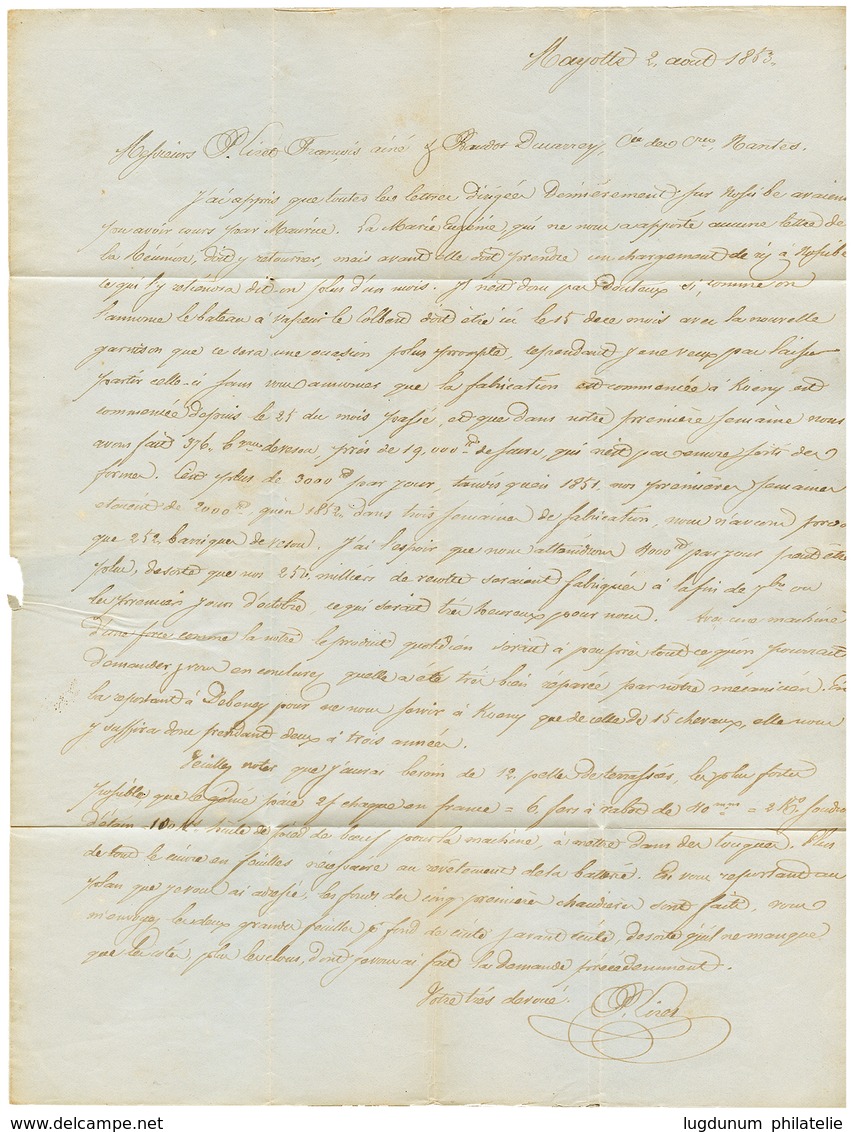 Mayotte 2 août 1853.
Messieurs P. Liret François ainé & Baudot Ducarrey, Nantes.
J'ai appris que toutes les lettres dirigées dernièrement sur Nossibe avaient
pou avoir cours par Maurice. La Marie Eugénie, qui ne nous a apporté aucune lettre de
la Réunion, doit y retourner, mais avant elle doit prendre un chargement de riz à Nossibé
ce qui l'y retiendra dit-on plus d'un mois. Il n'est donc pas douteux si, comme on
l'annonce le bateau à vapeur le Colbert doit être ici le 15 de ce mois avec la nouvelle
garnison que ce sera une occasion plus prompte, cependant je ne veux pas laisser
partir celle-ci sans vous annoncer que la fabrication est commencée à Koeny est
commencée depuis le 25 du mois passé, et que dans notre première semaine nous
avons fait 376 de vesou, près de 19,000 de sucre, qui n'est pas encore sorti des
formes. C'est plus de 3000 par jour, tandis qu'en 1851 nos premières semaines
étaient de 2000 qu'en 1852 dans trois semaines de fabrication, nous n'avons
que 252 barriques de vesou. J'ai l'espoir que nous attendrons 4000 par jour peut être
plus, de sorte que nos 250 milliers de récolte seraient fabriqués à la fin de 7bre ou
les premiers jours d'octobre, ce qui serait très heureux pour nous. Avec une machine
d'une force comme la notre le produit quotidien serait à peu près tout ce qu'on pourrait
demander, vous en conclurez qu'elle a été très bien réparée par notre mécanicien. En
la reportant à Debeney pour ne nous servir à Koeny que de celle de 15 chevaux, elle nous
y suffira donc pendant deux à trois années.
Veuillez noter que j'aurai besoin de 12 pelles de terrassés, les plus fortes
possible, que le génie paie 2f chaque en france = 6 fers à rabot de 40 mm = 2 Ko soudure
d'étain, 100 huile de pied de boeuf pour la machine, à mettre dans des touques. Plus
de tout le cuivre en feuilles nécessaire au revêtement de la batterie. En vous reportant au
plan que je vous ai adressé, les fonds des cinq premières chaudières sont faits, vous
m'envoyez les deux grandes feuilles pr fond de cuite, de sorte qu'il ne manque
que les cotés, plus les clous, dont je vous ai fait la demande précédemment.
Votre très dévoué. P. Liret
www.delcampe.net
lugdunum philatelie